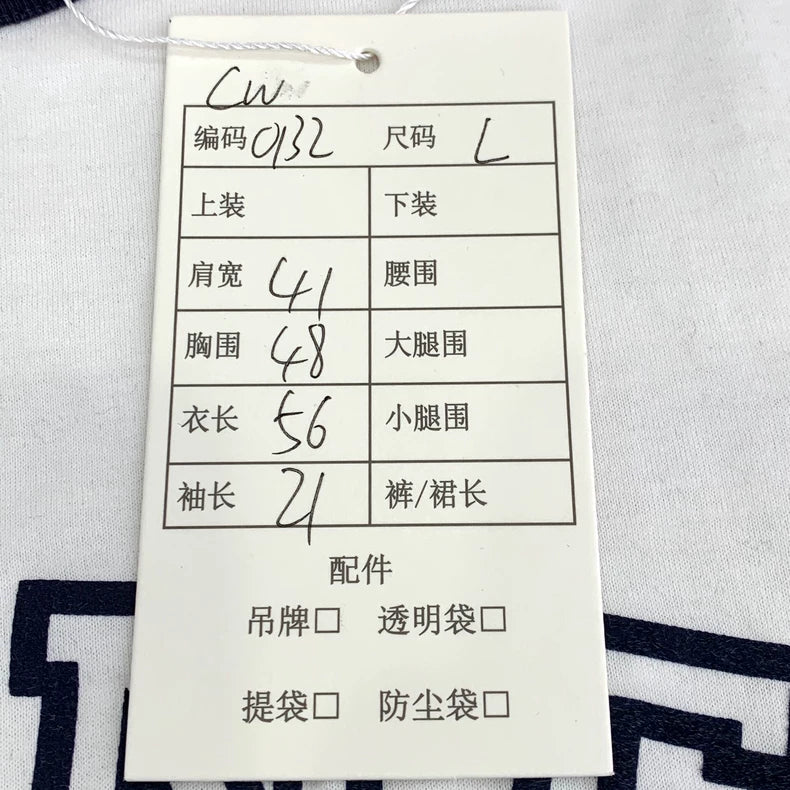 CW
编码 0132 尺码 L
上装 下装
肩宽 41 腰围
胸围 48 大腿围
衣长 56 小腿围
袖长 21 裤/裙长
配件
吊牌□ 透明袋□
提袋□ 防尘袋□